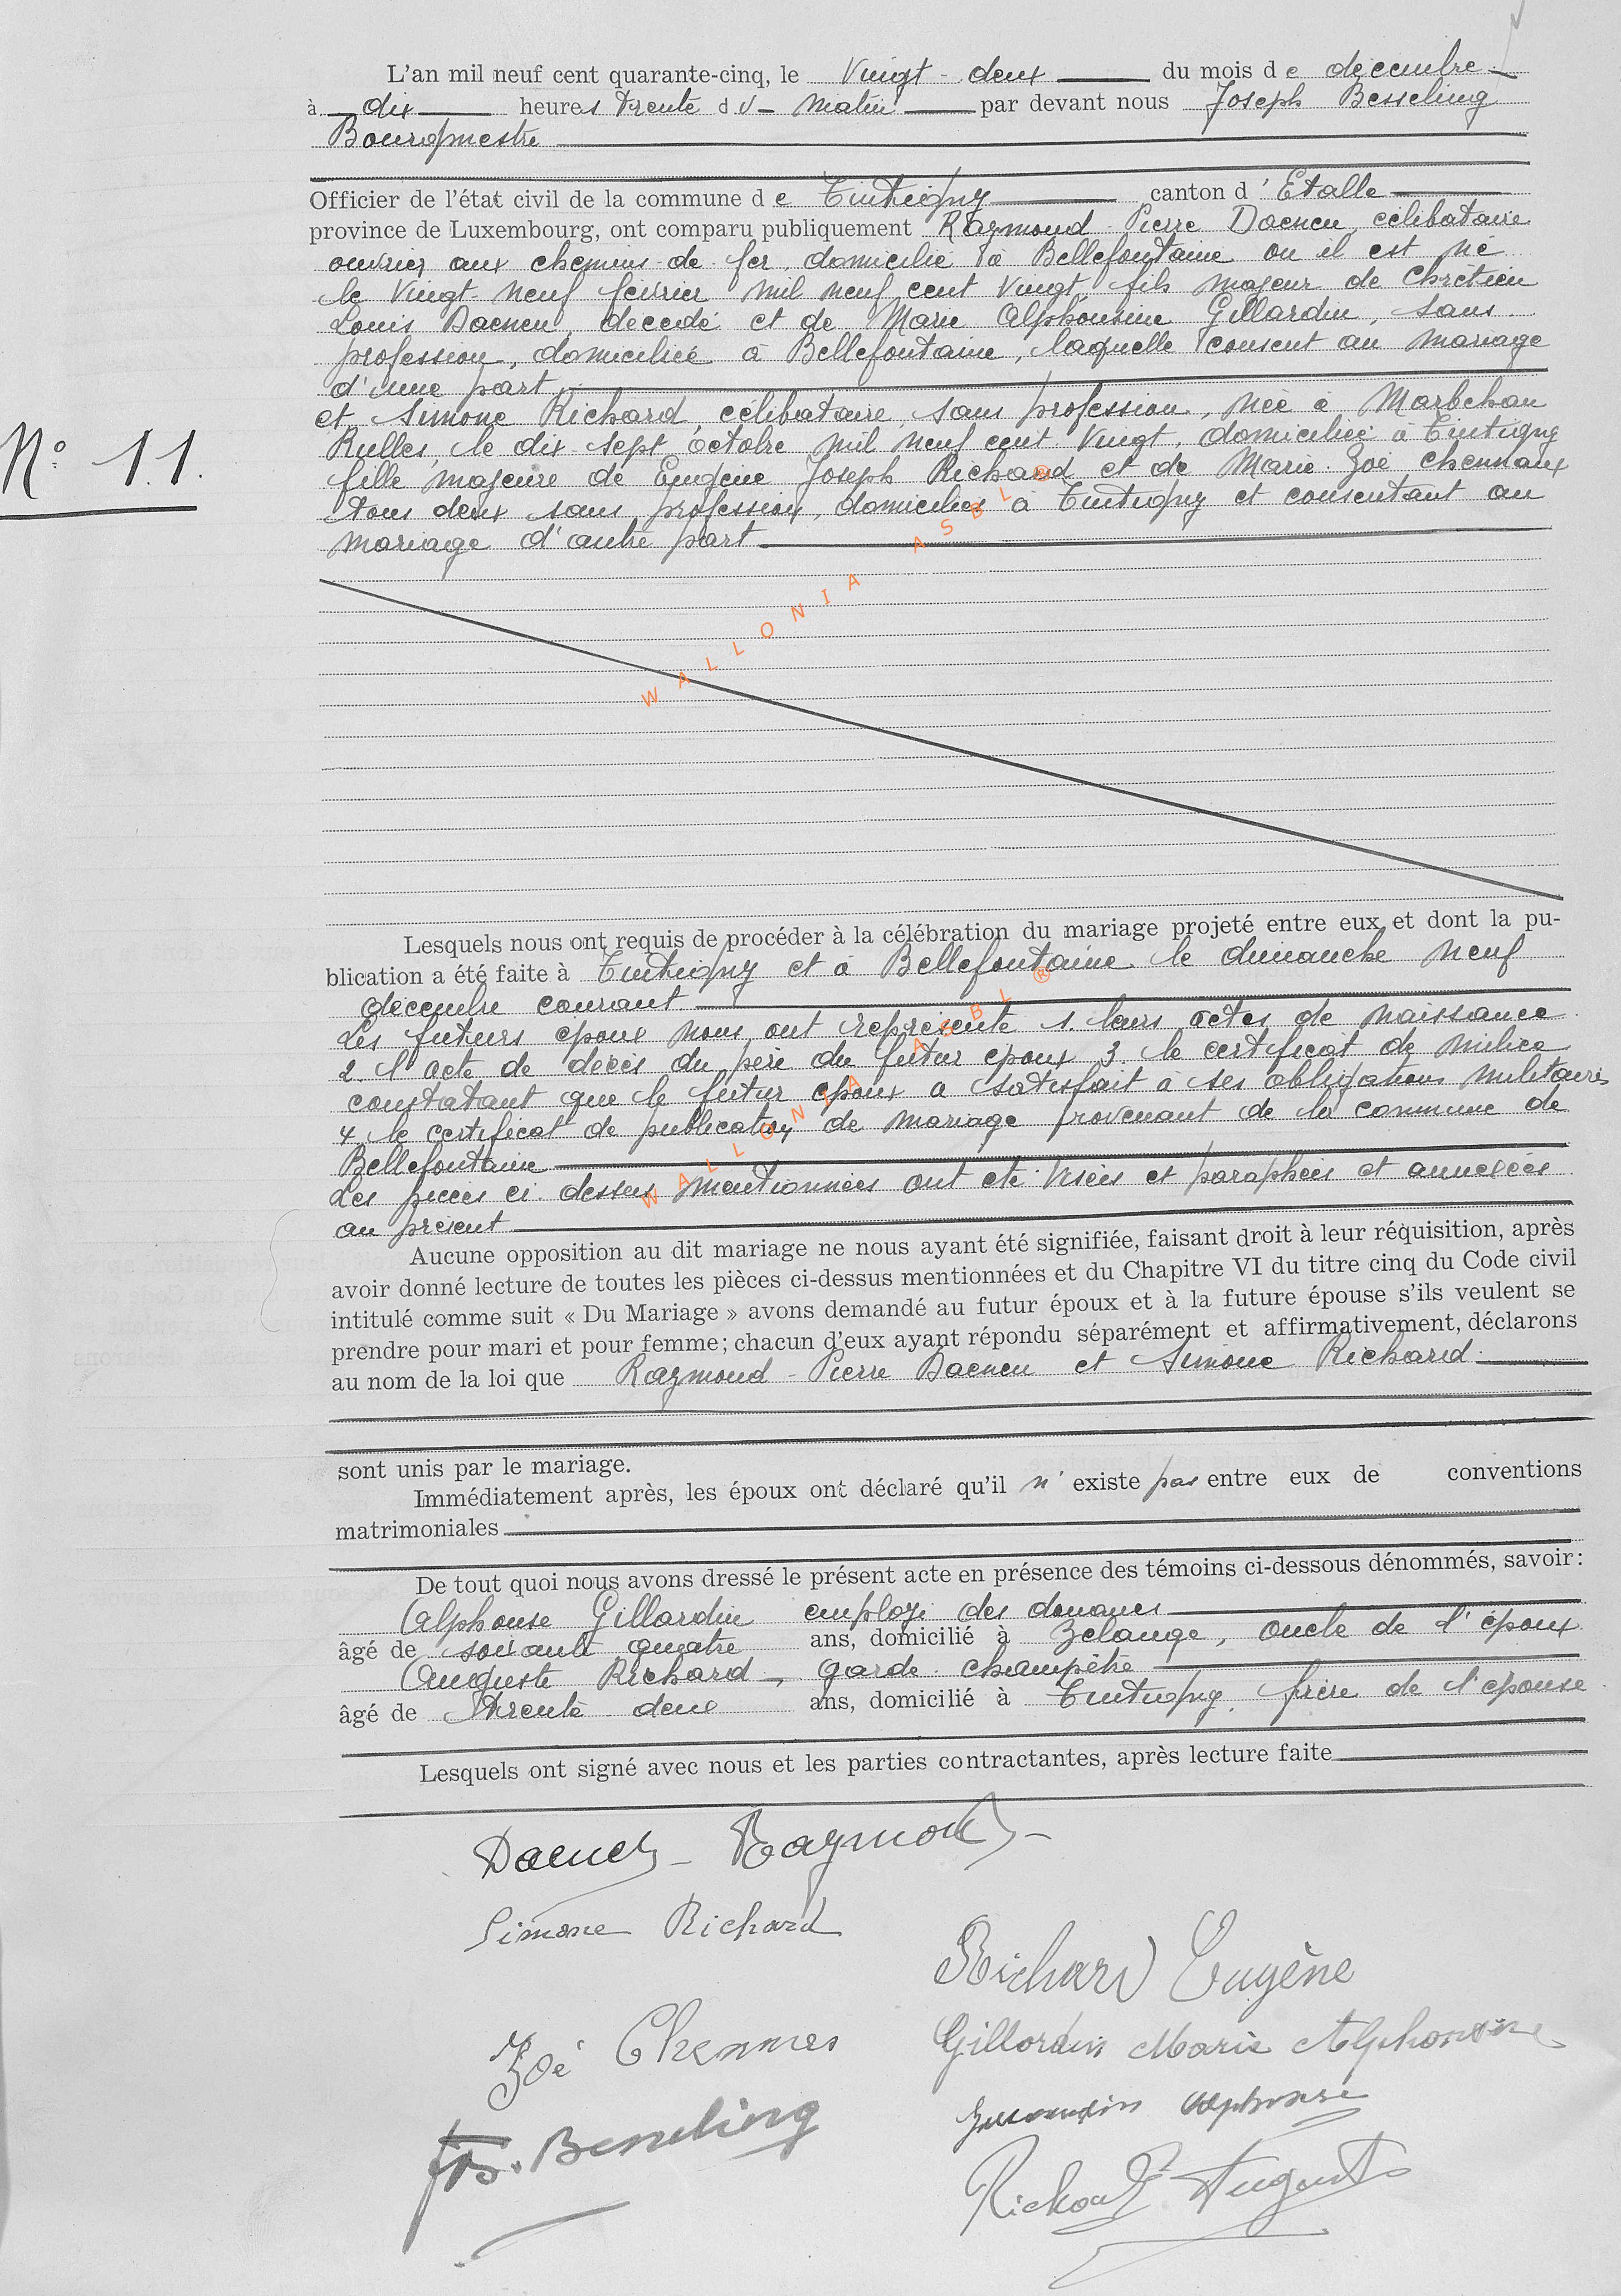 L'an mil neuf cent quarante-cinq, le Vingt-deux du mois de décembre
à dix heures trente du matin par devant nous Joseph Besseling
Bourgmestre
Officier de l'état civil de la commune de Tintigny canton d'Etalle
province de Luxembourg, ont comparu publiquement Raymond-Pierre Daenen, célibataire
ouvrier aux chemins de fer, domicilié à Bellefontaine où il est né
le Vingt-neuf février mil neuf cent vingt, fils majeur de Chrétien
Louis Daenen, décédé et de Marie Alphonsine Gillardin, sans
profession, domiciliée à Bellefontaine, laquelle consent au mariage
d'une part
et Simone Richard, célibataire, sans profession, née à Marbehan
Rulles, le dix-sept octobre mil neuf cent vingt, domiciliée à Tintigny
N° 11.
fille majeure de Eugène Joseph Richard et de Marie Zoé Chennaux
tous deux sans profession, domiciliés à Tintigny et consentant au
mariage d'autre part
WALLONIA ASBL ®
Lesquels nous ont requis de procéder à la célébration du mariage projeté entre eux et dont la pu-
blication a été faite à Tintigny et à Bellefontaine le dimanche neuf
décembre courant
Les futurs époux nous ont représenté 1. leurs actes de naissance
2. l'acte de décès du père du futur époux 3. le certificat de milice
constatant que le futur époux a satisfait à ses obligations militaires
4. le certificat de publication de mariage provenant de la commune de
Bellefontaine
Les pièces ci-dessus mentionnées ont été visées et paraphées et annexées
au présent
WALLONIA ASBL ®
Aucune opposition au dit mariage ne nous ayant été signifiée, faisant droit à leur réquisition, après
avoir donné lecture de toutes les pièces ci-dessus mentionnées et du Chapitre VI du titre cinq du Code civil
intitulé comme suit « Du Mariage » avons demandé au futur époux et à la future épouse s'ils veulent se
prendre pour mari et pour femme; chacun d'eux ayant répondu séparément et affirmativement, déclarons
au nom de la loi que Raymond-Pierre Daenen et Simone Richard
sont unis par le mariage.
Immédiatement après, les époux ont déclaré qu'il n'existe pas entre eux de conventions
matrimoniales
De tout quoi nous avons dressé le présent acte en présence des témoins ci-dessous dénommés, savoir:
Alphonse Gillardin employé des douanes
âgé de soixante quatre ans, domicilié à Zélange, oncle de l'époux
Auguste Richard, garde-champêtre
âgé de trente-deux ans, domicilié à Tintigny, frère de l'épouse
Lesquels ont signé avec nous et les parties contractantes, après lecture faite
Daenen Raymond
Simone Richard
Richard Eugène
Zoé Chennes
Gillardin Marie Alphonsine
Gillardin Alphonse
Besseling
Richard Auguste